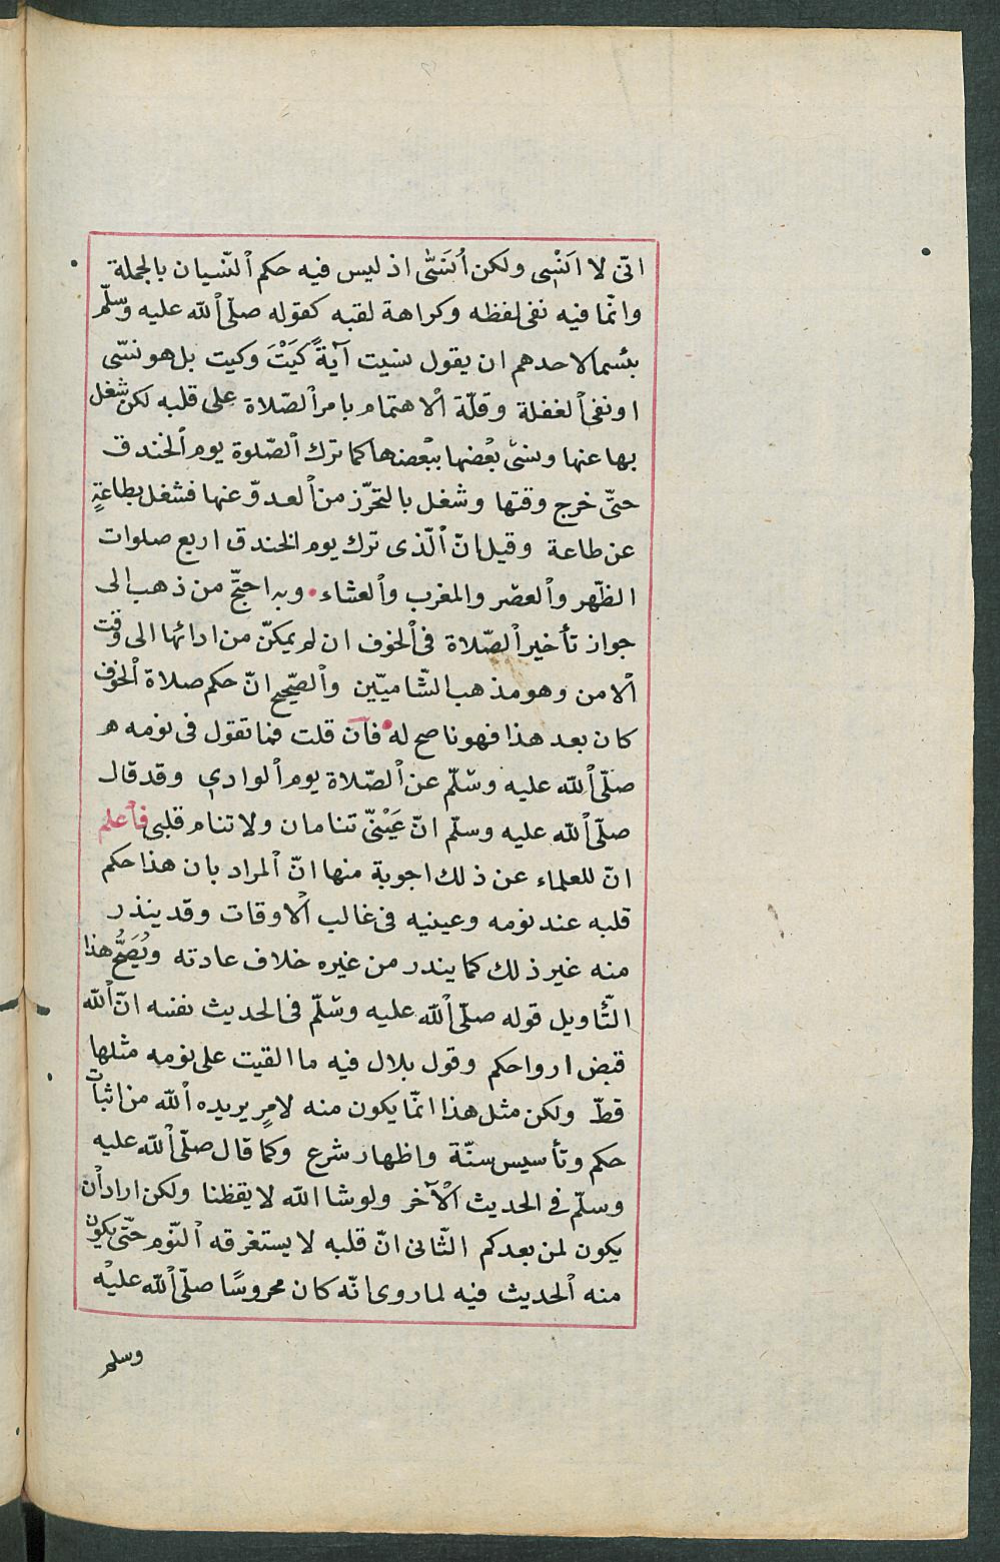 انّى لا اَنْسٰى ولكن اُنَسّٰى اذ ليس فيه حكم ٱلنّسيان بالجملة
وانّما فيه نفى لفظه وكراهة لقبه كقوله صلّى ٱللّه عليه وسلّم
بئسما لاحدهم ان يقول نسيت آيةً كَيَتْ وكيت بل هو نسّى
او نفى ٱلغفلة وقلّة ٱلاهتمام بامر ٱلصّلاة على قلبه لكن شغل
بها عنها ونسّى بعْضها ببعْضها كما ترك ٱلصّلوة يوم ٱلخندق
حتّى خرج وقتها وشغل بالتحرّز من ٱلعدوّ عنها فشغل بطاعةٍ
عن طاعة وقيل انّ ٱلّذى ترك يوم الخندق اربع صلوات
الظّهر وٱلعصْر والمغرب وٱلعشاء • وبه احتجّ من ذهب الى
جواز تأخير ٱلصّلاة فى ٱلخوف ان لم يمكنّ من ادائها الى وقت
ٱلامن وهو مذهب الشّاميّين وٱلصّحيح انّ حكم صلاة ٱلخوف
كان بعد هذا فهو ناصح له • فآن قلت فما تقول فى نومه ه
صلّى ٱللّه عليه وسّلّم عن ٱلصّلاة يوم ٱلوادى وقد قال
صلّى ٱللّه عليه وسلّم انّ عَيْنىّ تنامان ولا تنام قلبى فٱعلم
انّ للعلماء عن ذلك اجوبة منها انّ ٱلمراد بان هذا حكم
قلبه عند نومه وعينيه فى غالب ٱلاوقات وقد ينذر
منه غير ذلك كما يندر من غيره خلاف عادته ويُصَحُّ هذا
التّأويل قوله صلّى ٱللّه عليه وسّلّم فى الحديث نفسه انّ ٱللّه
قبض ارواحكم وقول بلال فيه ما القيت على نومه مثلها
قطّ ولكن مثل هذا انّما يكون منه لامرٍ يريده ٱللّه من اثبات
حكم وتأسيس سنّة واظهار شرع وكما قال صلّى ٱللّه عليه
وسلّم فى الحديث ٱلآخر ولو شا اللّه لايقظنا ولكن اراد أن
يكون لمن بعدكم الثّانى انّ قلبه لا يستغرقه ٱلنّوم حتّى يكون
منه ٱلحديث فيه لما روى انّه كان محروسًا صلّى ٱللّه عليْه
وسلم